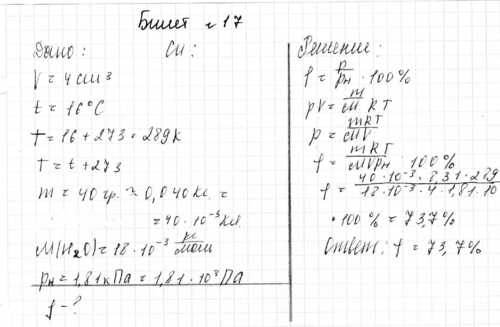 Билет №17
Дано: Си:
V = 4 см3
t = 16°C
T = 16 + 273 = 289К
T = t + 273
m = 40 гр. = 0,040 кг =
= 40 · 10⁻³ кг
M(H₂O) = 18 · 10⁻³ кг/моль
pн = 1,81 кПа = 1,81 · 10³ Па
f - ?
Решение:
f = p/pн · 100%
pV = m/M RT
p = mRT/MV
f = mRT/MVpн · 100%
f = 40 · 10⁻³ · 8,31 · 289/18 · 10⁻³ · 4 · 1,81 · 10
· 100% = 73,7%
Ответ: f = 73,7%